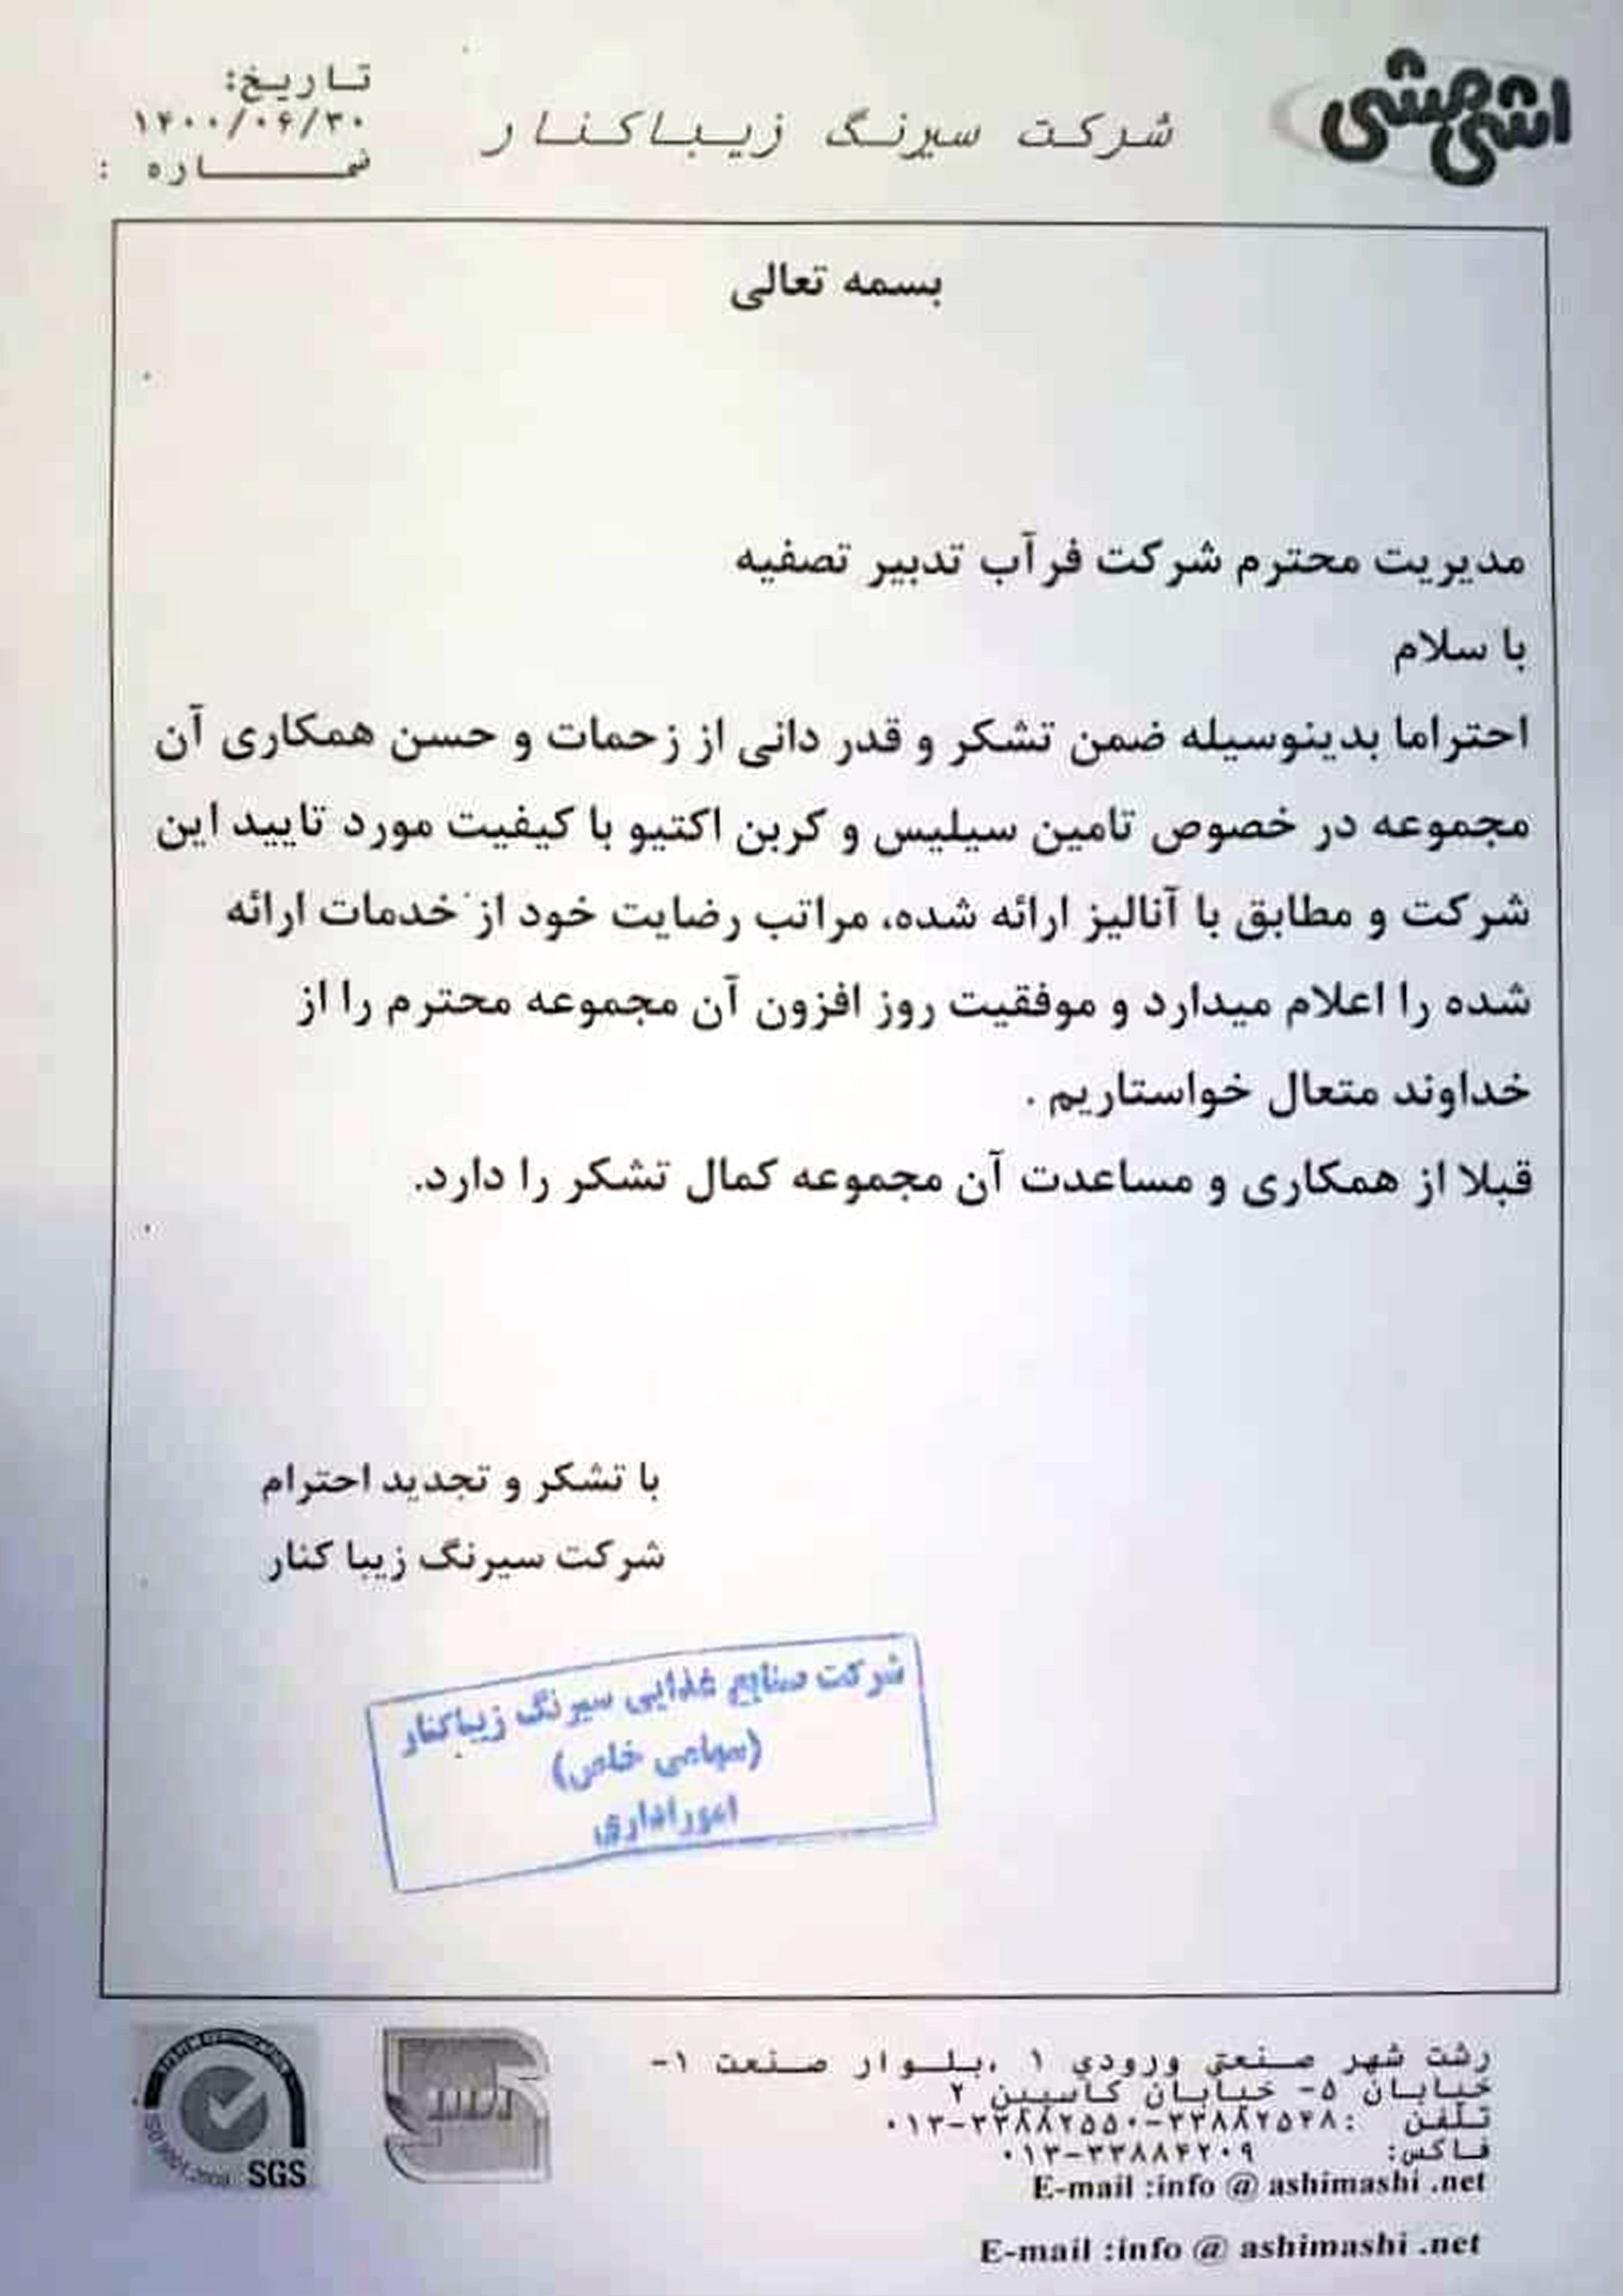 اشی مشی
شرکت سیرنگ زیباکنار
تاریخ:
۱۴۰۰/۰۶/۳۰
شماره :
بسمه تعالی
مدیریت محترم شرکت فرآب تدبیر تصفیه
با سلام
احتراما بدینوسیله ضمن تشکر و قدر دانی از زحمات و حسن همکاری آن
مجموعه در خصوص تامین سیلیس و کربن اکتیو با کیفیت مورد تایید این
شرکت و مطابق با آنالیز ارائه شده، مراتب رضایت خود از خدمات ارائه
شده را اعلام میدارد و موفقیت روز افزون آن مجموعه محترم را از
خداوند متعال خواستاریم .
قبلا از همکاری و مساعدت آن مجموعه کمال تشکر را دارد.
با تشکر و تجدید احترام
شرکت سیرنگ زیبا کنار
شرکت صنایع غذایی سیرنگ زیباکنار
(سهامی خاص)
امور اداری
رشت شهر صنعتی ورودی ۱ ،بلوار صنعت ۱-
خیابان ۵- خیابان کاسپین ۲
تلفن :۳۳۸۸۲۵۴۸-۰۱۳-۳۳۸۸۲۵۵۰
فاکس: ۰۱۳-۳۳۸۸۴۲۰۹
E-mail :info @ ashimashi .net
E-mail :info @ ashimashi .net
ISO 9001:2008
SGS